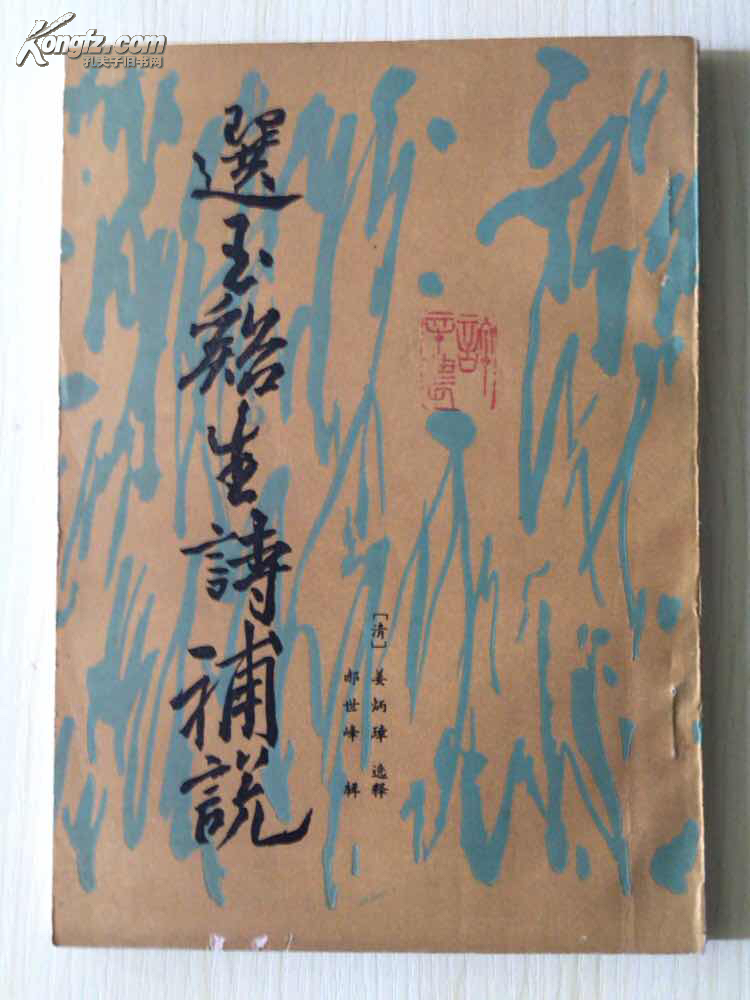 Kongfz.com
孔夫子旧书网
選玉谿生詩補説
[清] 姜炳璋 选释
郝世峰 辑